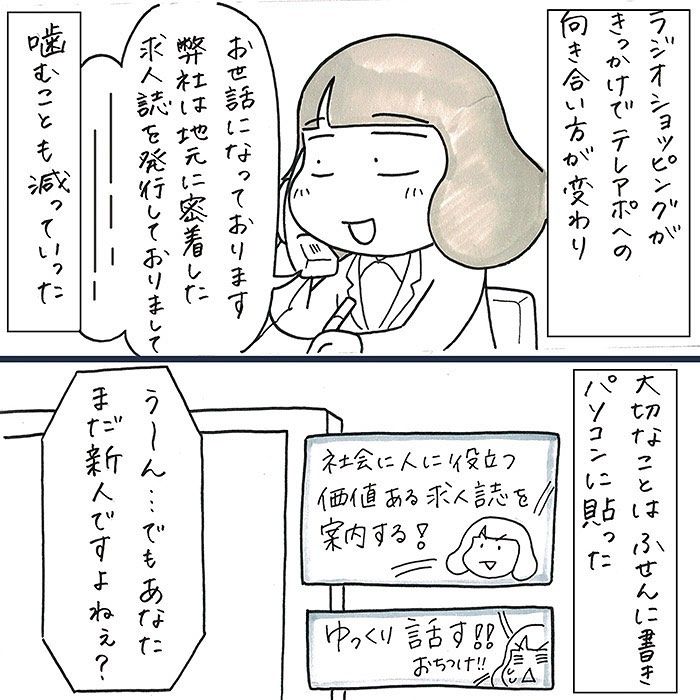 ラジオショッピングが
きっかけでテレアポへの
向き合い方が変わり
お世話になっております
弊社は地元に密着した
求人誌を発行しておりまして
噛むことも減っていった
大切なことはふせんに書き
パソコンに貼った
社会に人に役立つ
価値ある求人誌を
案内する!
ゆっくり話す!!
おちつけ!!
うーん…でもあなた
まだ新人ですよねぇ?